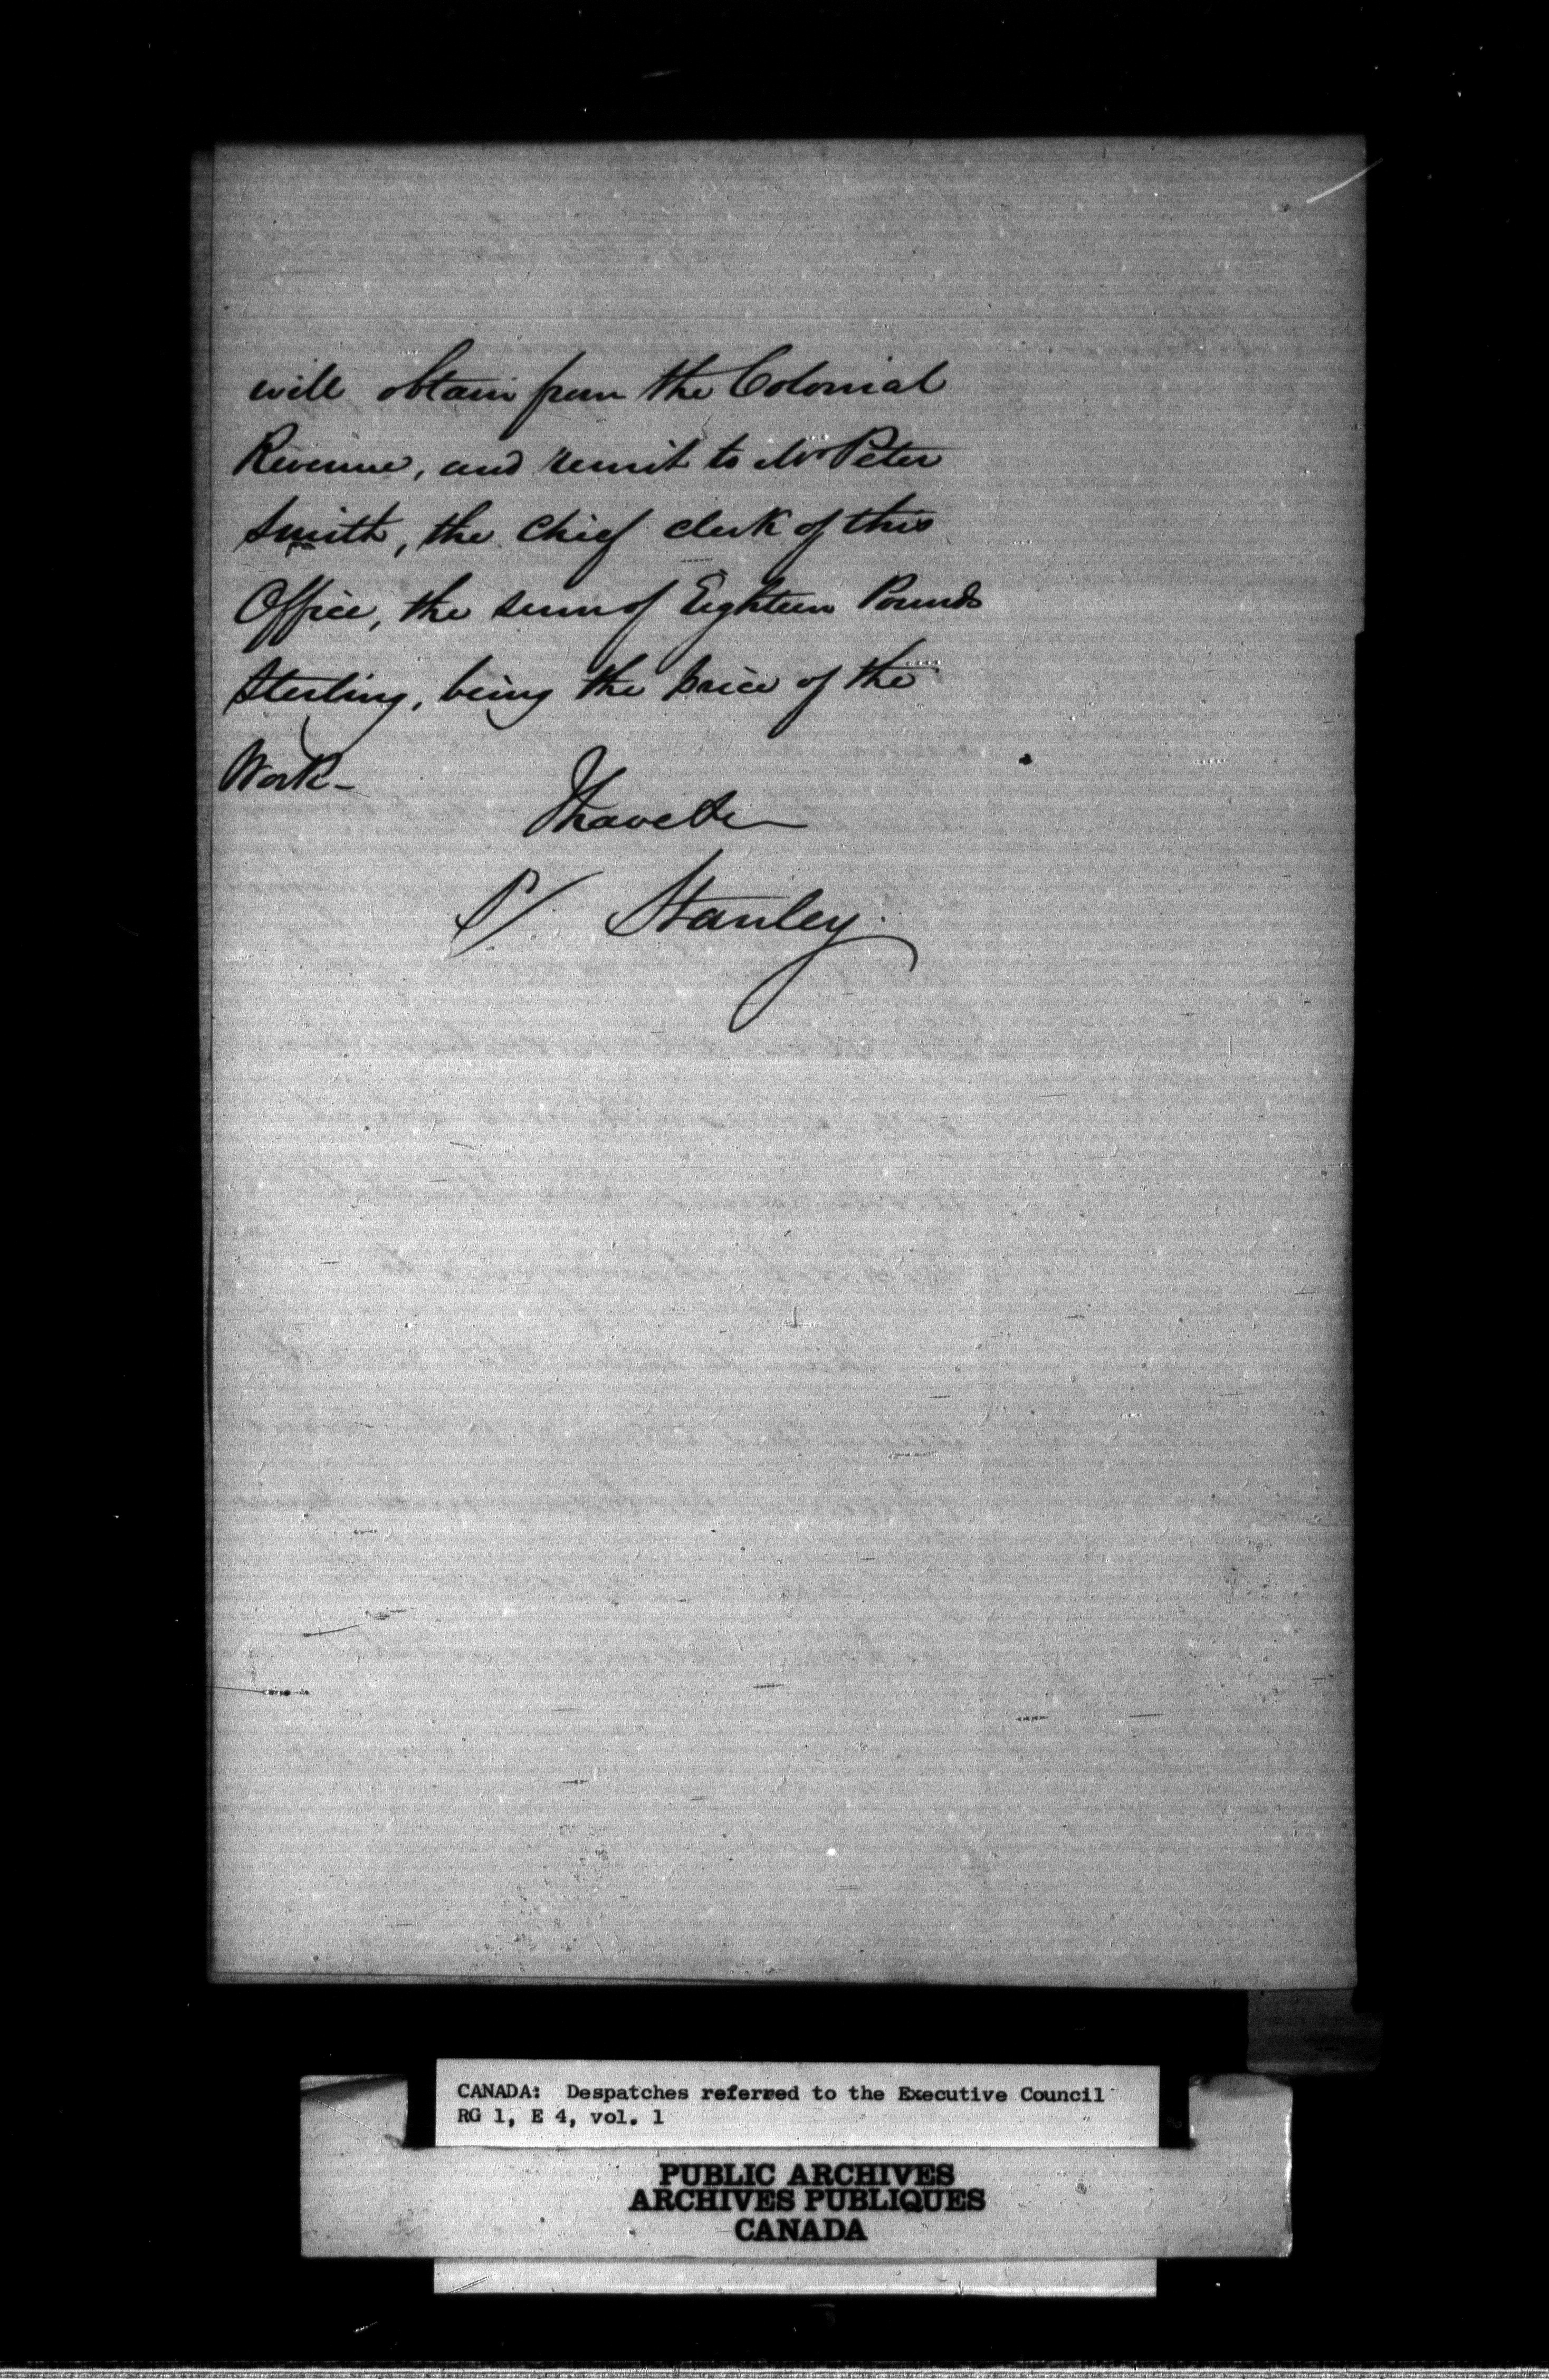 will obtain from the Colonial
Revenue, and remit to Mr Peter
Smith, the Chief Clerk of this
Office, the sum of Eighteen Pounds
Sterling, being the price of the
Work -
I have &c
S/ Stanley.
CANADA: Despatches referred to the Executive Council
RG 1, E 4, vol. 1
PUBLIC ARCHIVES
ARCHIVES PUBLIQUES
CANADA